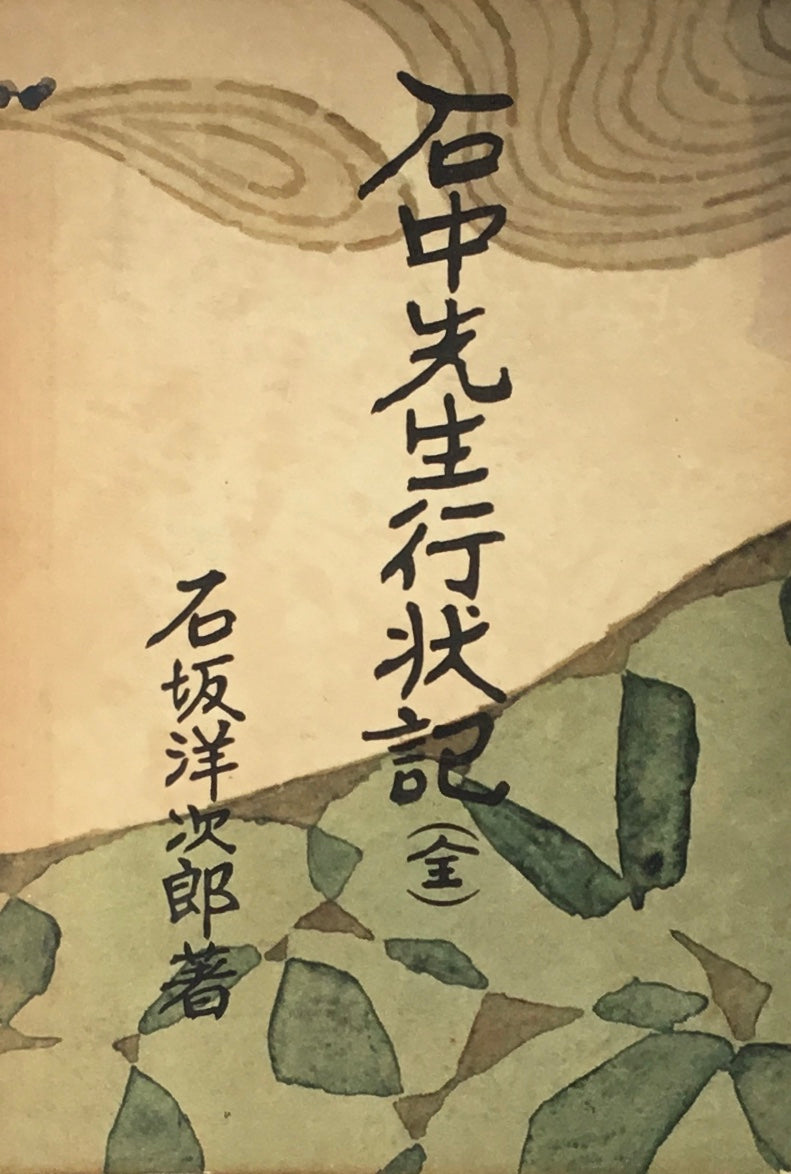 石中先生行状記(全)
石坂洋次郎著